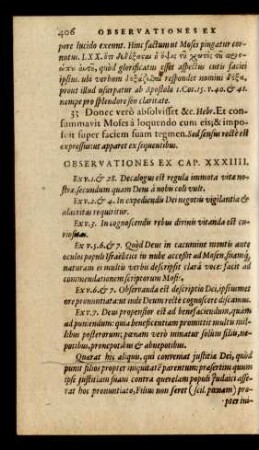 406 OBSERVATIONES EX
pere lucido exeunt. Hinc factum ut Moses pingatur cor-
nutus. LXX. ὅτι δεδόξασαι ἡ ὄψις τοῦ χρωτὸς τοῦ
αὐτοῦ, quòd glorificatus esset aspectus cutis faciei
ipsius. ubi verbum respondet nomini δόξα,
prout illud usurpatur ab Apostolo 1. Cor. 15. v. 40. & 41.
nempe pro splendore seu claritate.
33 Donec verò absolvisset &c. Hebr. Et con-
summavit Moses à loquendo cum eis, & im-
posuit super faciem suam tegmen. Sed sensus rectè est
expressus ut apparet ex sequentibus.
OBSERVATIONES EX CAP. XXXIIII.
Ex v. 1. & 28. Decalogus est regula immota vitæ no-
stræ, secundum quam Deus à nobis coli vult.
Ex v. 2. & 4. In expediendis Dei negotiis vigilantia &
alacritas requiritur.
Ex v. 3. In cognoscendis rebus divinis vitanda est cu-
riositas.
Ex v. 5. 6. & 7. Quòd Deus in cacumine montis ante
oculos populi Israëlitici in nube accessit ad Mosen, suamque
naturam ei multis verbis descripsit clara voce: facit ad
commendationem scriptorum Mosis.
Ex v. 6. & 7. Observanda est descriptio Dei, ipsiusmet
ore pronuntiata: ut inde Deum rectè cognoscere discamus.
Ex v. 7. Deus propensior est ad benefaciendum, quàm
ad puniendum: quia beneficentiam promittit multis mil-
libus posterorum; pœnam verò minatur solùm filiis, ne-
potibus, pronepotibus & abnepotibus.
Quærat hîc aliquis, quî conveniat justitia Dei, quòd
punit filios propter iniquitatẽ parentum; præsertim quum
ipse justitiam suam contra querelam populi Judaici asse-
rat hoc pronuntiato, Filius non feret (scil. pœnam) pro-
pter ini-